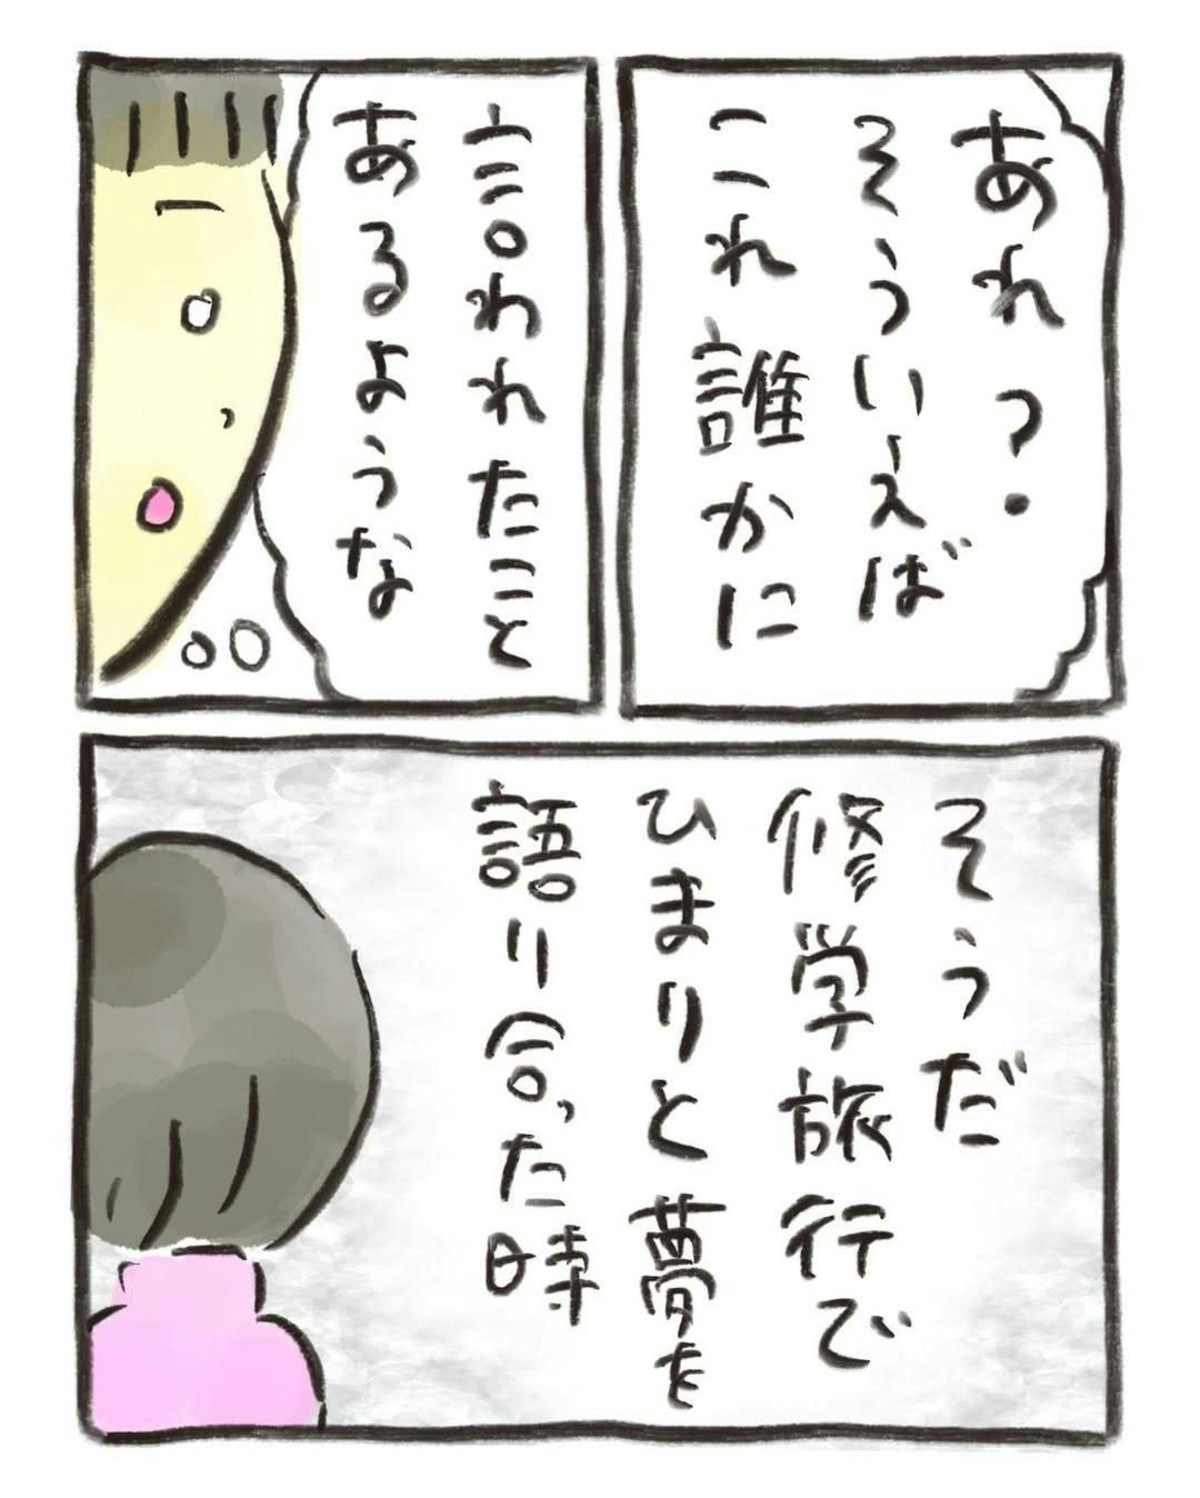 あれ？
そういえば
これ誰かに
言われたこと
あるような
そうだ
修学旅行で
ひまりと夢を
語り合った時